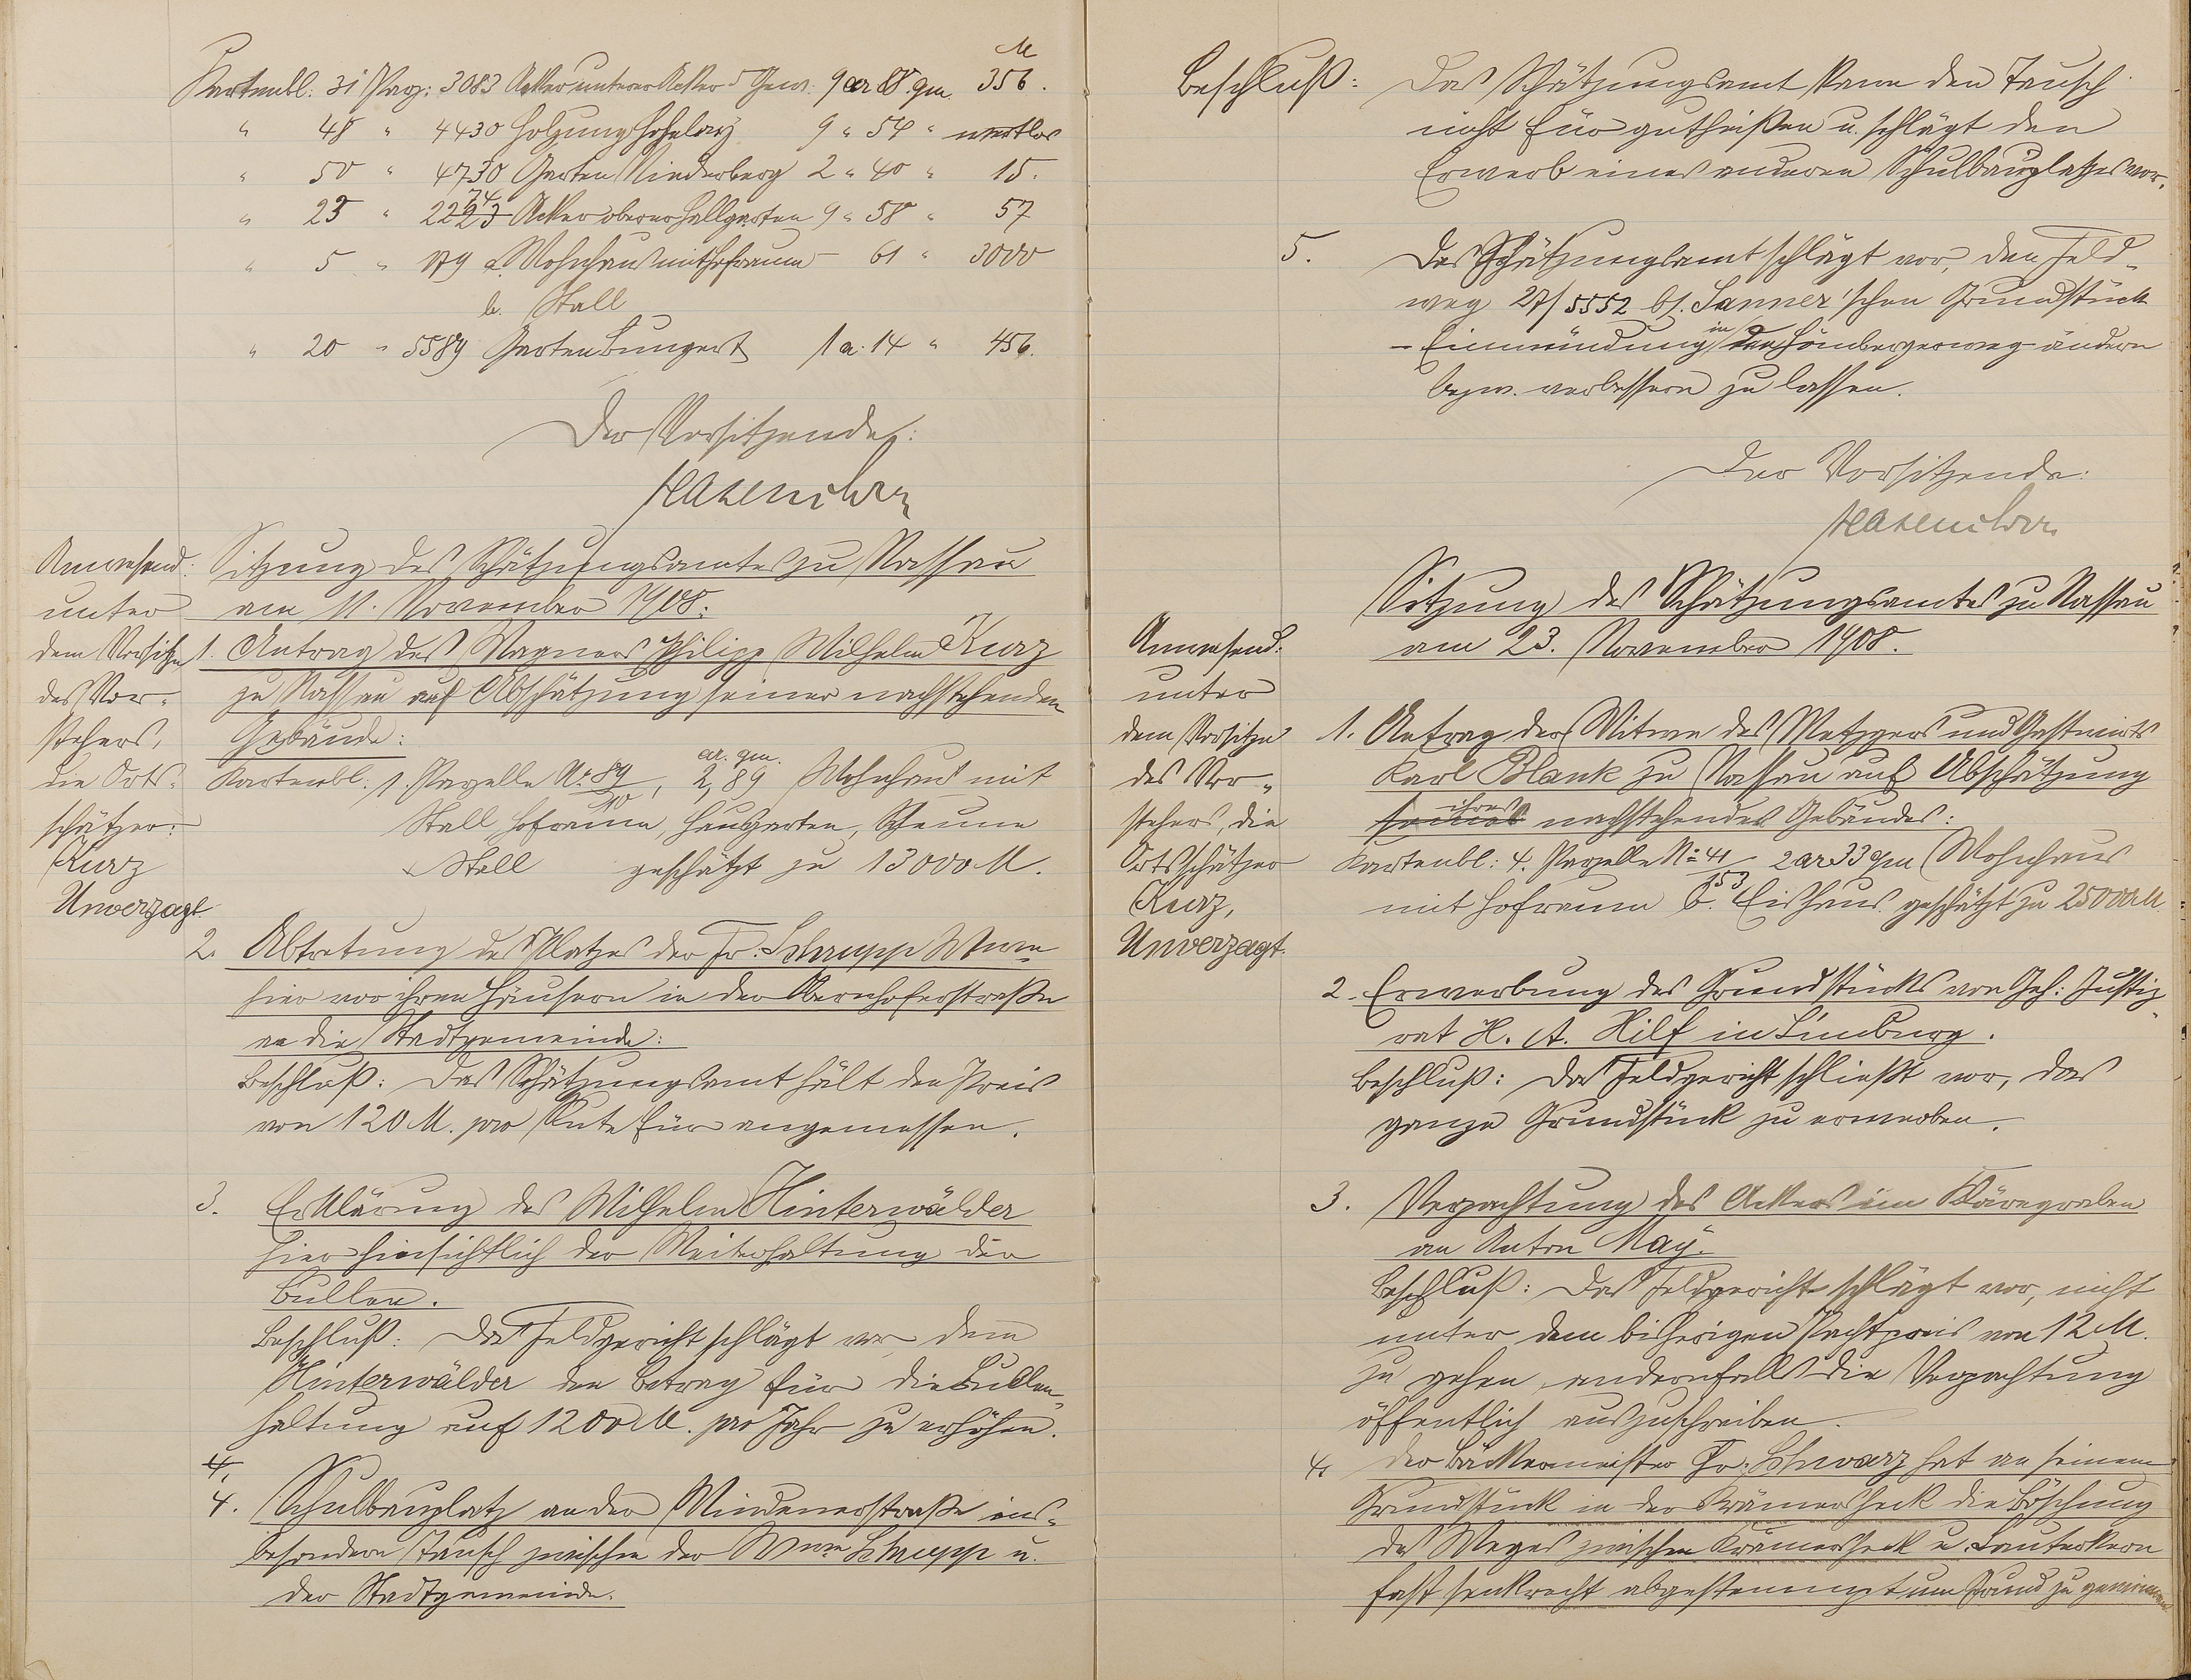 M
Kartenbl: 31 Parz: 3083 Acker unterer Acker 5 Gew. 9 ar 88 qm 356.
" 48 " 4430 Holzung Hohelay 9 " 54 " wertlos
" 50 " 4730 Garten Niederberg 2 " 40 " 15.
" 23 " 2274 Acker oberer Hallgarten 9 " 58 " 57
" 5 " 179 a. Wohnhaus mit Hofraum – 61 " 3000
b. Stall
" 20 " 5589 Garten Bungert 1 a. 14 " 456.
Der Vorsitzende:
Hasenclever
Anwesend:
unter
dem Vorsitze
des Vor-
stehers,
die Orts-
schätzer:
Kurz
Unverzagt.
Sitzung des Schätzungsamtes zu Nassau
am 11. November 1908.
1. Antrag des Wagners Philipp Wilhelm Kurz
zu Nassau auf Abschätzung seiner nachstehenden
Gebäude:
ar. qm.
Kartenbl. 1. Parzelle No 89/10, 2,89 Wohnhaus mit
Stall Hofraum, Hausgarten, Scheune
Stall geschätzt zu 13000 M.
2. Abtretung des Platzes der Fr. Schrupp Wwe
hier vor ihren Häusern in der Obernhoferstraße
an die Stadtgemeinde:
Beschluß: Das Schätzungsamt hält den Preis
von 120 M. pro Rute für angemessen.
3. Erklärung des Wilhelm Hinterwälder
hier hinsichtlich der Weiterhaltung der
Bullen.
Beschluß: Das Feldgericht schlägt vor dem
Hinterwälder den Betrag für die Bullen-
haltung auf 1200 M. pro Jahr zu erhöhen.
4.
4. Schulbauplatz an der Windenerstraße ins-
besondere Tausch zwischen der Wwe Schrupp u.
der Stadtgemeinde.
Beschluß: Das Schätzungsamt kann den Tausch
nicht für gutheißen u. schlägt den
Erwerb eines anderen Schulbauplatzes vor.
5. Das Schätzungsamt schlägt vor, den Feld-
weg 27/5552 bz. Sanner'schen Grundstück
– Einmündung in den Hömbergerweg – ändern
bezw. verbessern zu lassen.
Der Vorsitzende:
Hasenclever
Sitzung des Schätzungsamtes zu Nassau
am 23. November 1908.
Anwesend:
unter
dem Vorsitze
des Vor-
stehers, die
Ortsschätzer
Kurz,
Unverzagt.
1. Antrag der Witwe des Metzgers und Gastwirts
Karl Blank zu Nassau auf Abschätzung
seines ihres nachstehendes Gebäudes:
Kartenbl: 4. Parzelle No 41/153 2 ar 33 qm Wohnhaus
mit Hofraum b. Eishaus geschätzt zu 25000 M.
2. Erwerbung des Grundstücks von Geh: Justiz-
rat H. A. Hilf in Limburg.
Beschluß: Das Feldgericht schließt vor, das
ganze Grundstück zu erwerben.
3. Verpachtung des Ackers im
an Anton May.
Beschluß: Das Feldgericht schlägt vor, nicht
unter dem bisherigen Pachtpreis von 12 M.
zu gehen andernfalls die Verpachtung
öffentlich auszuschreiben.
4. Der Bäckermeister Fr. Schwarz hat an seinem
Grundstück in der Krämersheck die Böschung
des Weges zwischen Krämersheck u. Lauterkorn
fast senkrecht abgestemmpt um Grund zu gewinnen